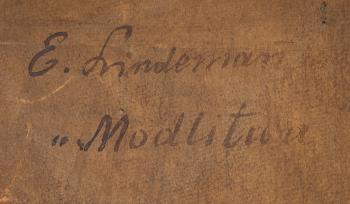 E. Lindeman
„Modlitwa